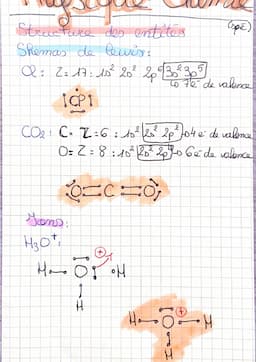 Physique Chimie
(spé)
Structure des entités
Shémas de lewis:
Cl: Z=17: 1s² 2s² 2p⁶ 3s² 3p⁵
↳ 7é de valence
|Cl|
CO₂: C• Z=6: 1s² 2s² 2p² → 4é de valence
O= Z=8: 1s² 2s² 2p⁴ → 6é de valence
O=C=O
Ions:
H₃O⁺:
H — O • H
H
H — O — H
⊕
H